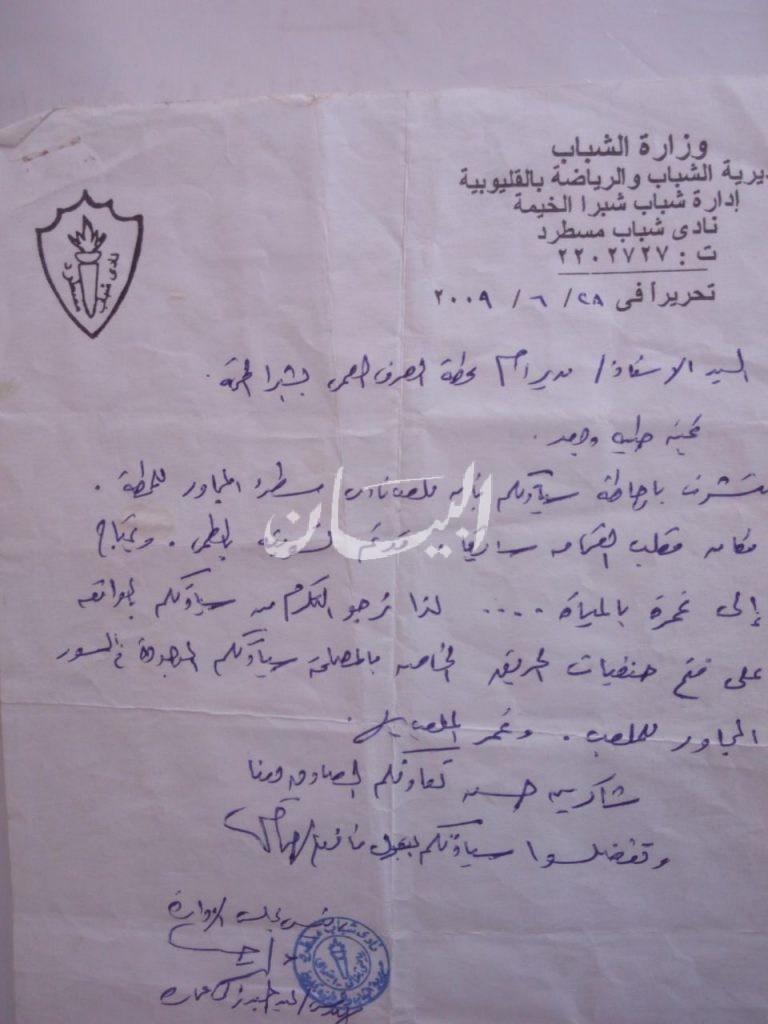 وزارة الشباب
ديرية الشباب والرياضة بالقليوبية
إدارة شباب شبرا الخيمة
نادى شباب مسطرد
ت : ٢٢٠٢٧٢٧
تحريرأ فى ٢٨ / ٦ / ٢٠٠٩
نادى شباب مسطرد
السيد الاستاذ / مدير عام محطة الصرف الصحى بشبرا الخيمة .
تحية طيبة وبعد .
نتشرف باحاطة سيادتكم بأن ملعب نادى مسطرد المجاور للمحطة .
مكانه مقلب القمامه سابقا بالطمى . ويحتاج
إلى غمرة بالمياة .... لذا نرجو التكرم من سيادتكم بالموافقه
على فتح حنفيات الحريق الخاصه بالمحطة سيادتكم الموجودة فى السور
المجاور للملعب . وغمر الملعب .
شاكرين حسن تعاونكم الصادق معنا
وتفضلوا سيادتكم بقبول فائق الاحترام
البيان
رئيس مجلس الادارة
نادى شباب مسطرد